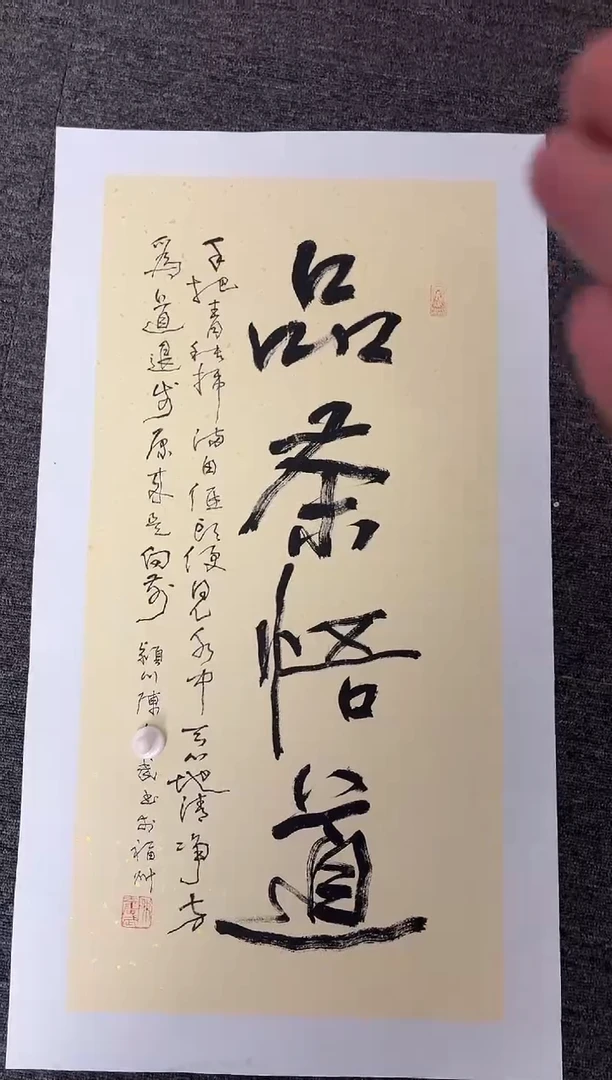 品茶悟道
手把青秧插满田低头便見水中天心地清净方
為道退步原來是向前
穎川陳武书於福州